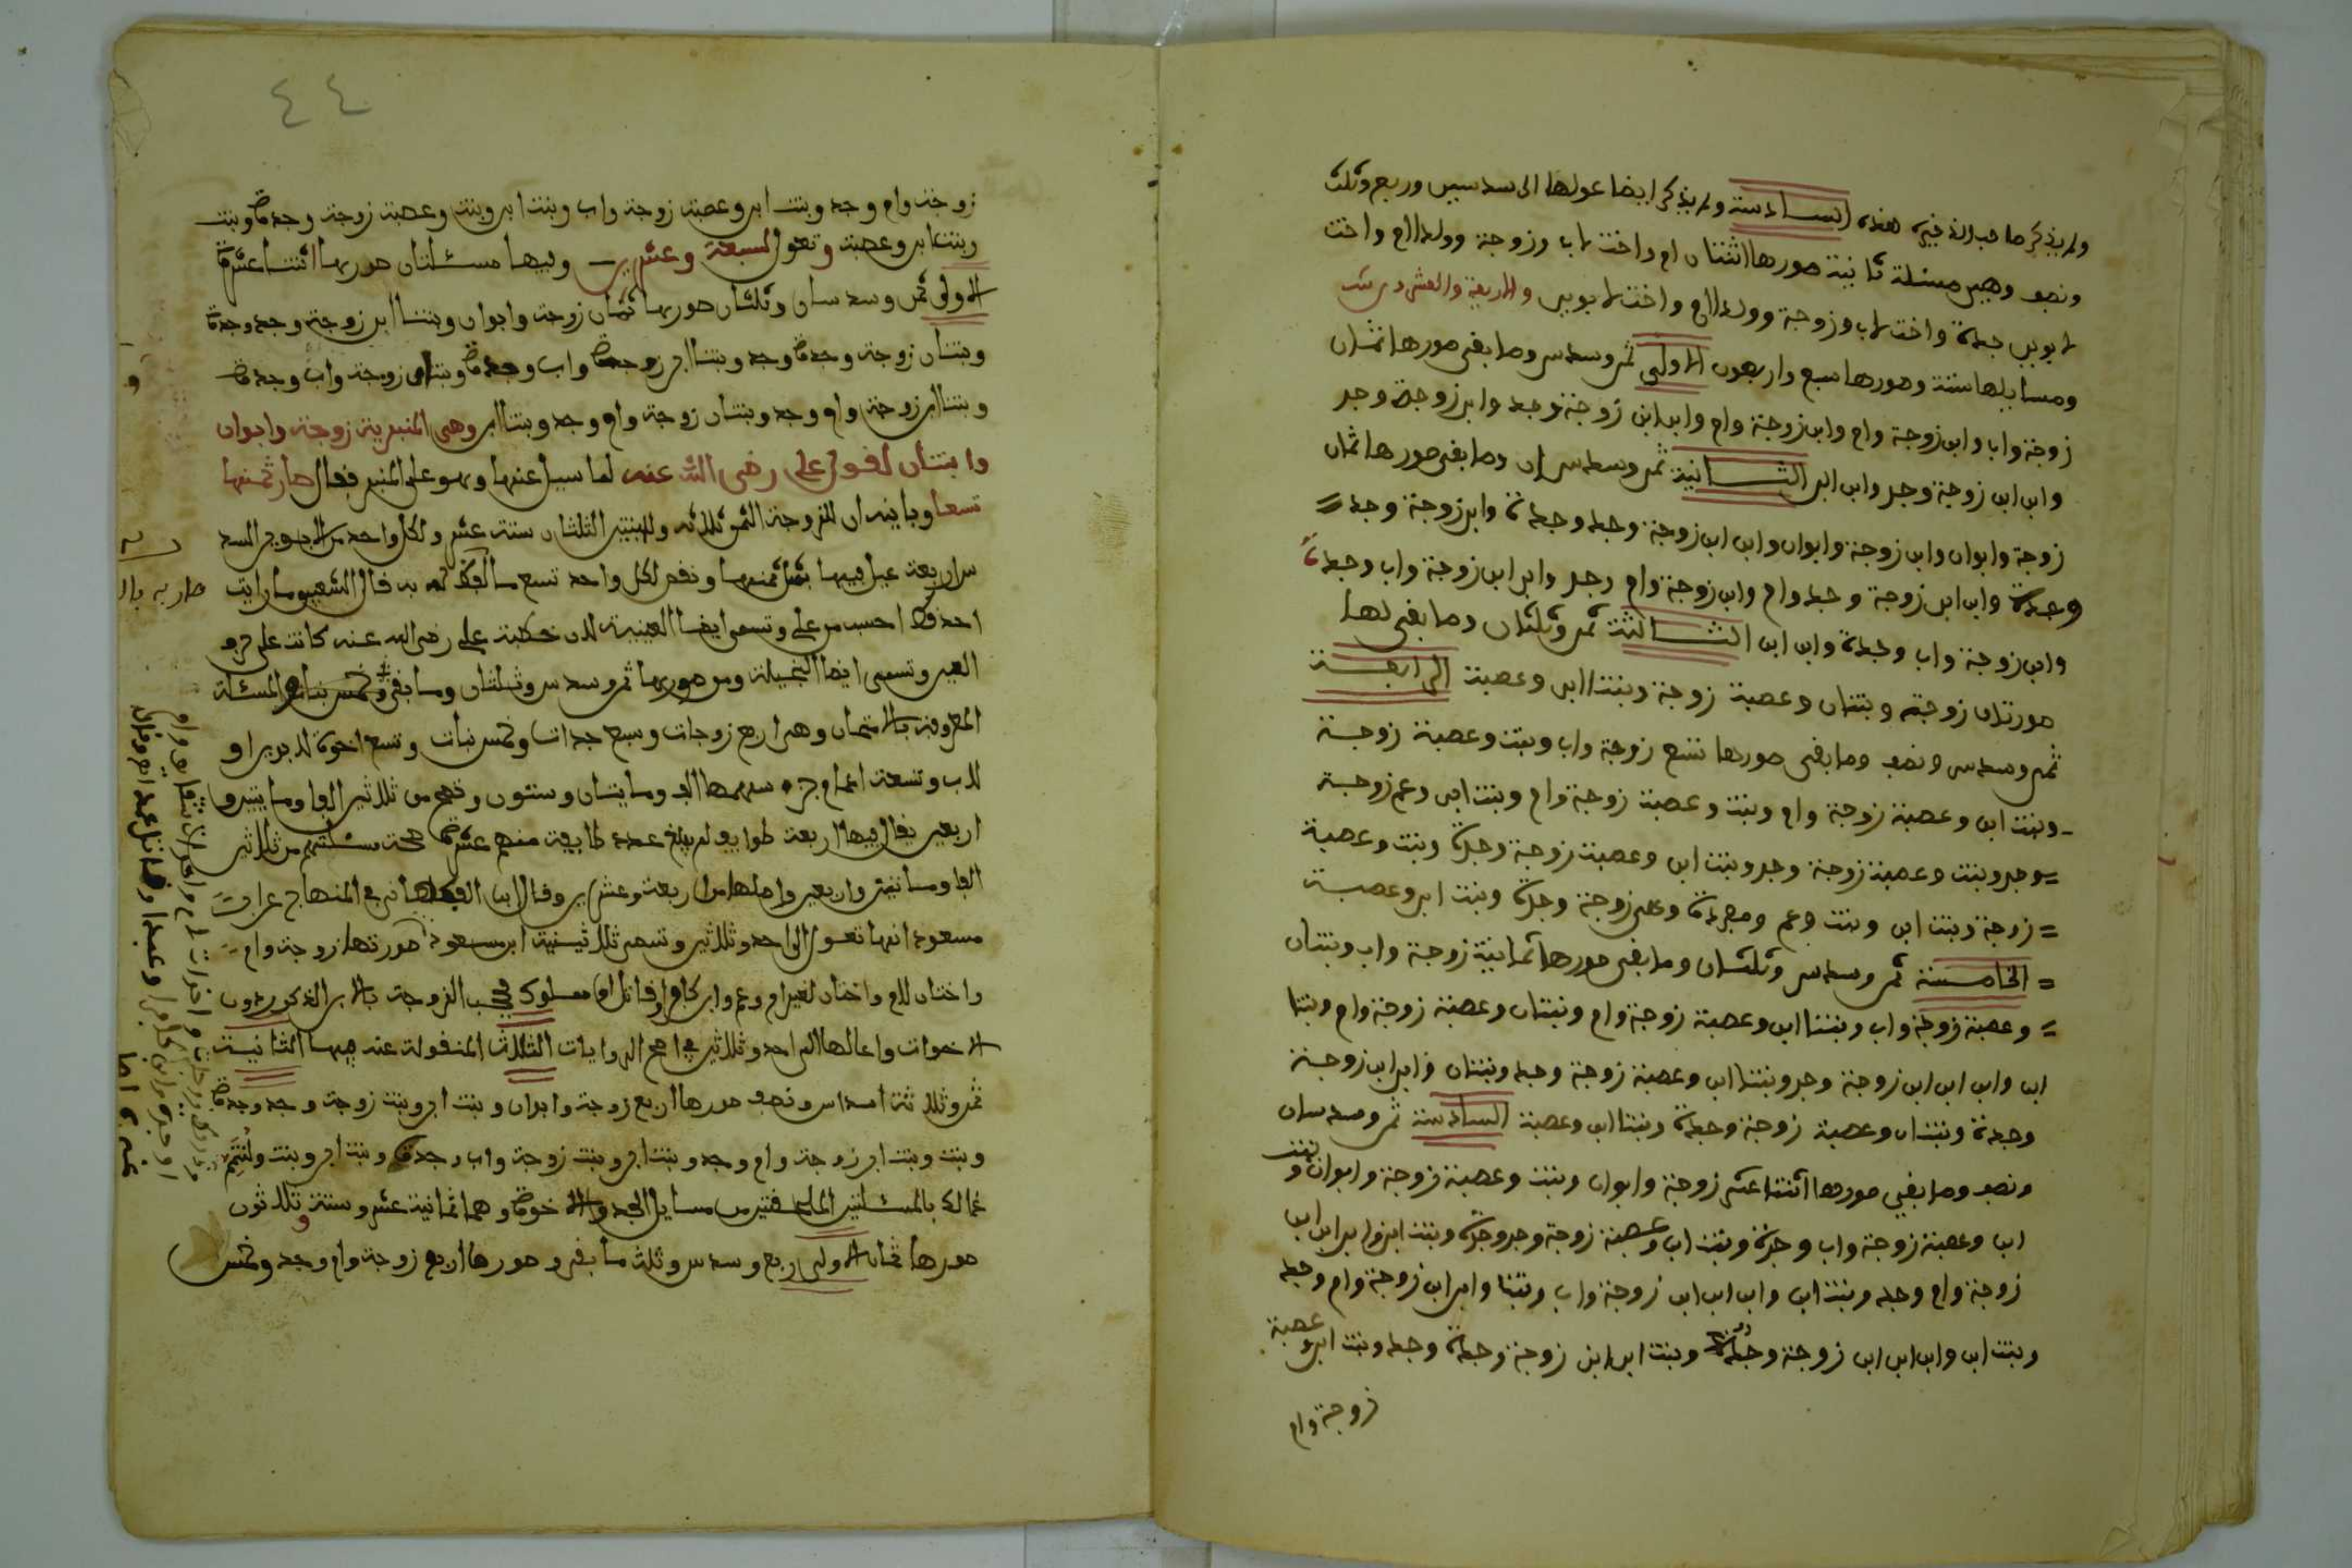 ولم يذكر صاحب الذخيرة هذه السادسة ولم يذكر ايضا عولها الى سدسين وربع وثلث
ونصف وهي مسئلة ثانية صورها اثنتان ام واخت لاب وزوجة وولد الام واخت
لابوين جدة واخت لاب وزوجة وولد الام واخت لابوين والاربعة والعشرون
ومسايلها ستة وصورها سبع واربعون الاولى ثمن وسدس وما بقي صورها ثمان
زوجة واب وابن زوجة وام وابن زوجة وام وابن ابن زوجة وجد وابن زوجة وجد
وابن ابن زوجة وجد وابن ابن الثانية ثمن وسدسان وما بقي صورها ثمان
زوجة وابوان وابن زوجة وابوان وابن ابن زوجة وجد وجدة وابن زوجة وجد
وجدة وابن ابن زوجة وجد وام وابن زوجة وام وجد وابن ابن زوجة واب وجدة
وابن زوجة واب وجدة وابن ابن الثالثة ثمن وثلثان وما بقي لها
صورتان زوجة وبنتان وعصبة زوجة وبنتا ابن وعصبة الرابعة
ثمن وسدس ونصف وما بقي صورها تسع زوجة واب وبنت وعصبة زوجة
وبنت ابن وعصبة زوجة وام وبنت وعصبة زوجة وام وبنت ابن وعم زوجة
وجد وبنت وعصبة زوجة وجد وبنت ابن وعصبة زوجة وجدة وبنت وعصبة
زوجة وبنت ابن وبنت وعم زوجة وجدة وبنت ابن وعصبة
الخامسة ثمن وسدس وثلثان وما بقي صورها ثمانية زوجة واب وبنتان
وعصبة زوجة واب وبنتا ابن وعصبة زوجة وام وبنتان وعصبة زوجة وام وبنتا
ابن وابن ابن ابن زوجة وجد وبنتا ابن وعصبة زوجة وجد وبنتان وابن ابن زوجة
وجدة وبنتان وعصبة زوجة وجدة وبنتا ابن وعصبة السادسة ثمن وسدسان
ونصف وما بقي صورها اثنتا عشر زوجة وابوان وبنت وعصبة زوجة وابوان وبنت
ابن وعصبة زوجة واب وجدة وبنت ابن وعصبة زوجة وجد وجدة وبنت ابن وابن ابن ابن
زوجة وام وجد وبنت ابن وابن ابن ابن زوجة واب وبنتا وابن ابن زوجة وام وجد
وبنت ابن وابن ابن ابن زوجة وجدة وبنت ابن ابن زوجة وجدة وجد وبنت ابن وعصبة
زوجة وام
٤٤
زوجة وام وجد وبنت ابن وعصبة زوجة واب وبنت ابن وبنت وعصبة زوجة وجدة وبنت
وبنت ابن وعصبة وتعول لسبعة وعشرين وفيها مسئلتان صورهما اثنتا عشرة
الاولى ثمن وسدسان وثلثان صورها ثمان زوجة وابوان وبنتا ابن زوجة وجد وجدة
وبنتان زوجة وجدة وجد وبنتا ابن زوجة واب وجدة وبنتان زوجة واب وجدة
وبنتا ابن زوجة وام وجد وبنتان زوجة وام وجد وبنتا ابن وهي المنبرية زوجة وابوان
وابنتان لقول علي رضي الله عنه لما سيل عنها وهو على المنبر فقال صار ثمنها
تسعا وبيانه ان للزوجة الثمن ثلاثة وللبنتين الثلثان ستة عشر ولكل واحد من الابوين السد
س اربعة عيل فيها بمثل ثمنها ونقص لكل واحد تسع ما لفظ له به قال الشعبي ما رايت
احدا قط احسب من علي وتسمى ايضا الغيبية لان خطبة علي رضي الله عنه كانت على حرف
العين وتسمى ايضا البخيلة ومن صورها ثمن وسدس وثلثان وما بقي وخمس بنات المسئلة
المعروفة بالامتحان وهي اربع زوجات وسبع جدات وخمس بنات وتسع اخوة لابوين او
لاب وتسعة اعمام جزء سهمها الف ومايتان وستون وتصح من ثلاثين الفا ومايتين و
اربعين يقال فيها اربعة طوايف لم يبلغ عدد طايفة منهم عشرة صحة مسئلتهم من ثلاثين
الفا ومائتين واربعين واصلها من اربعة وعشرين وقال ابن في المنهاج عن ابن
مسعود انها تعول الى احد وثلاثين وتسمى ثلاثينية ابن مسعود صورتها زوجة وام
واختان لام واختان لغير ام وعم وابن كافر او قاتل او مملوك فحجب الزوجة بالابن المذكور دون
الاخوات واعالها الى احد وثلاثين في اصح الروايات الثلاث المنقولة عنه فيها الثانية
ثمن وثلاثة اسداس ونصف صورها اربع زوجة وابوان وبنت ابن وبنت زوجة وجد وجدة
وبنت وبنت ابن زوجة وام وجد وبنت ابن وبنت زوجة واب وجدة وبنت ابن وبنت ولنتمم
ذلك بالمسئلتين الملحقتين من مسايل الجد والاخوة وهما ثمانية عشر وستة وثلاثون
صورها ثمان الاولى ربع وسدس وثلث ما بقي وصورها اربع زوجة وام وجد وخمس